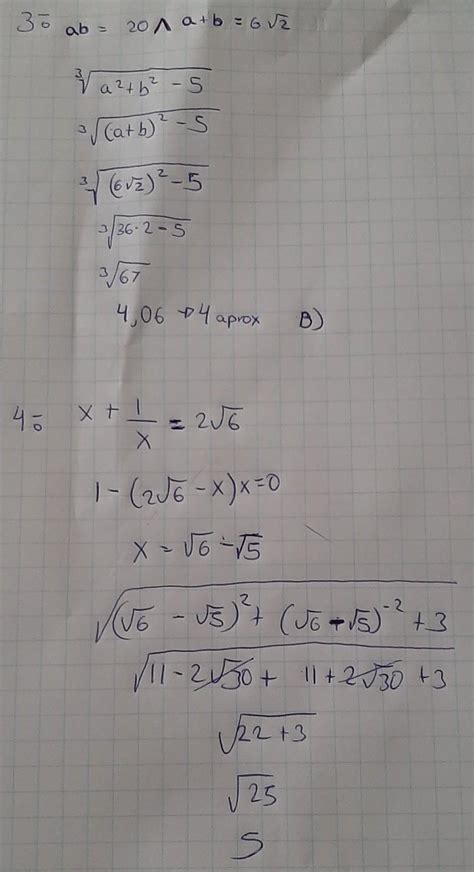 3º ab = 20 ∧ a+b = 6√2
∛(a²+b² - 5)
∛((a+b)² - 5)
∛((6√2)² - 5)
∛(36·2 - 5)
∛67
4,06 → 4 aprox B)
4º x + 1/x = 2√6
1 - (2√6 - x)x = 0
x = √6 - √5
√((√6 - √5)² + (√6 - √5)⁻² + 3)
√(11 - 2√30 + 11 + 2√30 + 3)
√(22 + 3)
√25
5